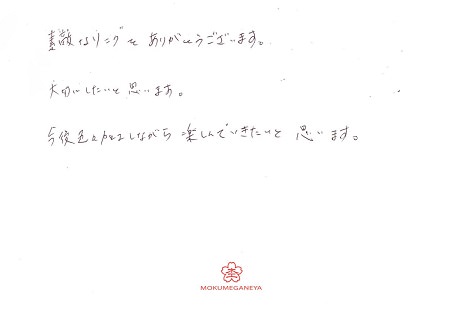 素敵なリングをありがとうございます。
大切にしたいと思います。
今後色々加工しながら楽しんでいきたいと思います。
MOKUMEGANEYA